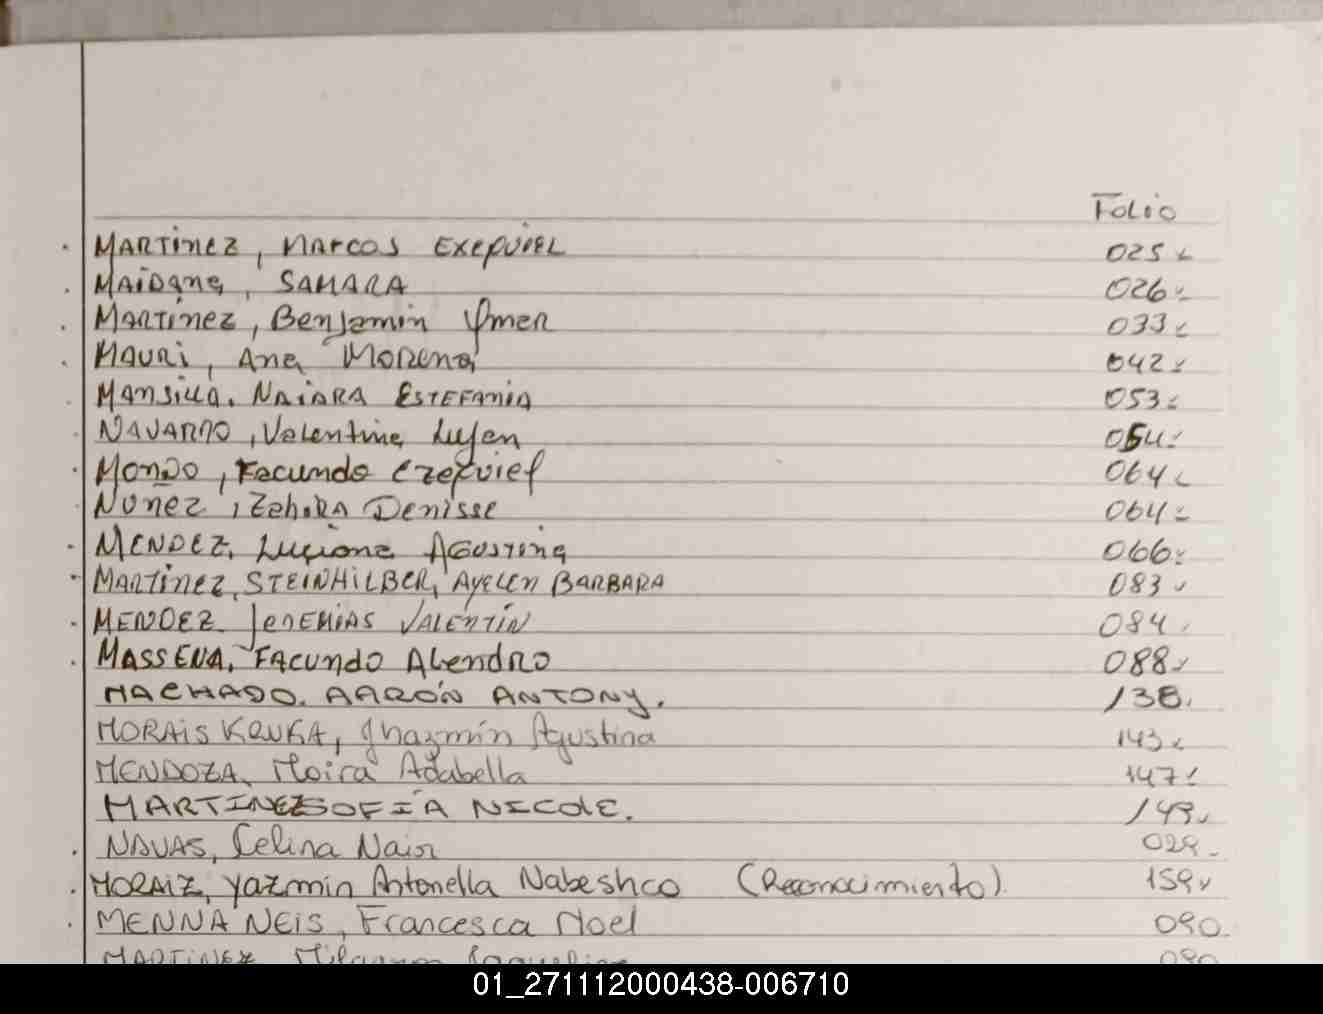 Folio
MARTINEZ, MARCOS EXEQUIEL 025
MAIDANA, SAMARA 026
MARTINEZ, Benjamin Ymer 033
MAURI, Ana Morena 042
MANSILLA. NAIARA ESTEFANIA 053
NAVARRO, Valentina Lujan 054
MONDO, Facundo Ezequiel 064
NUÑEZ, Zahira Denisse 064
MENDEZ, Luciana AGUSTINA 066
MARTINEZ, STEINHILBER, AYELEN BARBARA 083
MENDEZ JEREMIAS VALENTÍN 084
MASSENA, FACUNDO Alendro 088
MACHADO. AARÓN ANTONY. 138
MORAIS KRUKA, Jhazmín Agustina 143
MENDOZA, Moira Adabella 147
MARTINEZ SOFÍA NICOLE. 149
NAVAS, Celina Nair 029
MORAIZ, Yazmín Antonella Nabeshco (Reconocimiento). 159
MENNA NEIS, Francesca Noel 090
MARTINEZ, Milagros Jaqueline 090
01_271112000438-006710